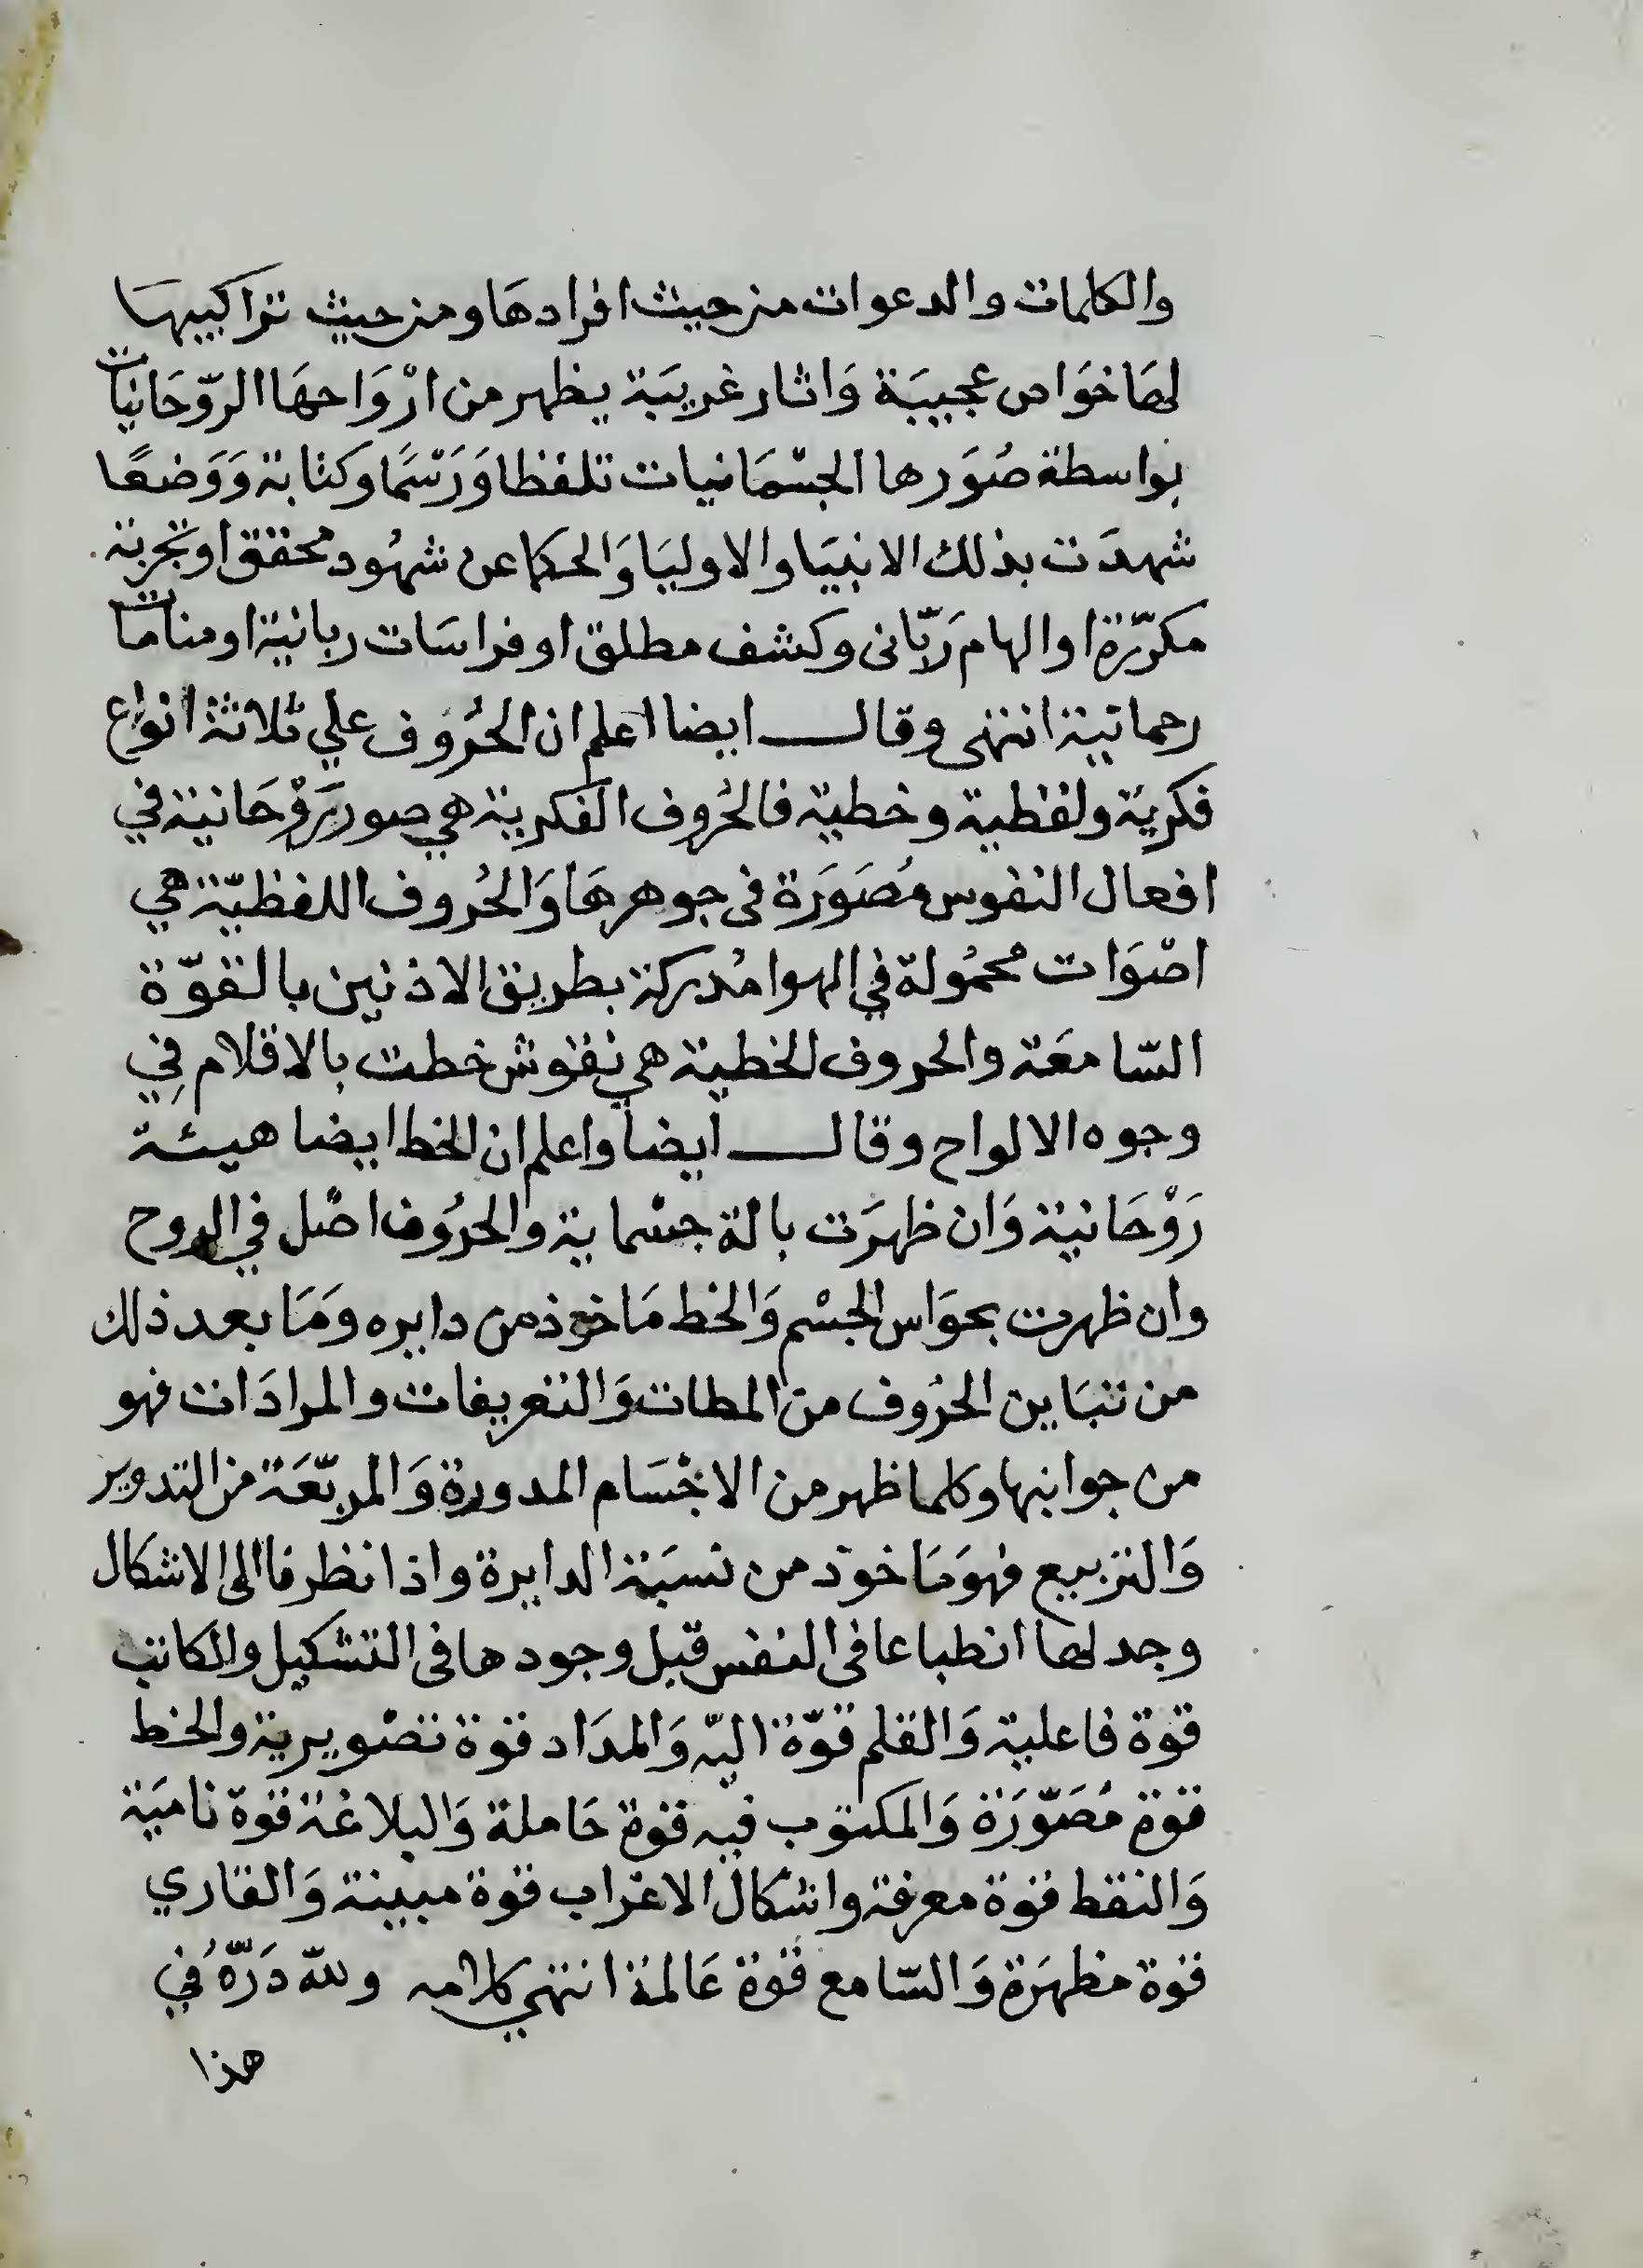 والكلمات والدعوات من حيث افرادهَا ومن حيث تراكيبها
لهَا خوَاص عجيبَة وَاثار غريبَة يظهر من ارْوَاحهَا الرّوحَانيات
بواسطة صُوَرها الجسْمَانيات تلفظا وَرَسْمَا وكتابة وَوَضعًا
شهدَت بذلك الانبيَا والاوليَا وَالحكما عن شهُود محقق او تجربة
مكرّرة او الهام رَبّانى وكشف مطلق او فراسَات ربانية او منامات
رحمانية انتهى وقال ايضا اعلم ان الحُرُوف علي ثلاثة انواع
فكريَة ولفظية وخطية فالحُروف الفكرية هي صور رَوْحَانية في
افعال النفوس مُصَوَرَة فى جوهرهَا وَالحُروف اللفظيّة هي
اصْوَات محمُولة في الهوا مُدركة بطريق الاذنين بالقوّة
السّامعَة والحروف الخطية هي نقوش خطت بالاقلام فِي
وجوه الالواح وقال ايضا واعلم ان الخط ايضا هيئة
رَوْحَانية وَان ظهرَت بالة جسْمابة والحرُوف اصْل في الروح
وان ظهرت بحوَاس الجسْم وَالخط مَاخوذ من دايره وَمَا بعد ذلك
من تبَاين الحرُوف من المطات وَالتعريفات والمرادَات فهو
من جوانبها وكلما ظهر من الاجْسَام المدورة وَالمربّعَة من التدوير
وَالتربيع فهوَ مَاخوذ من نسبَة الدايرة واذا نظرنا الى الاشكال
وجد لها انطباعا فى النفس قبل وجودها فى التشكيل والكاتب
قوة فاعلية وَالقلم قوّة اليّه وَالمدَاد قوة تصْويرية والخط
قوة مُصَوّرَة وَالمكتوب فيه قوة حَاملة وَالبلاغة قوة ناميَة
وَالنقط قوة معرفة واشكال الاعْراب قوة مبينة وَالقاري
قوة مظهرَة وَالسّامع قوة عَالمة انتهي كلامه وللّه دَرّهُ في
هذا